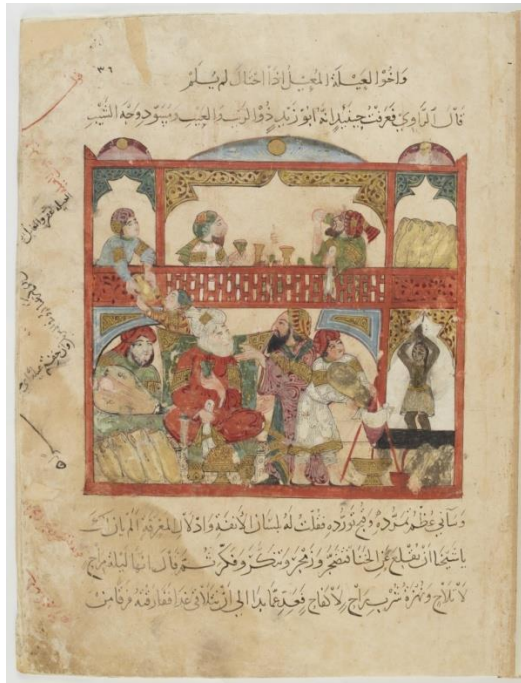 ٣٦
واخو العيلة المعيل اذا احتال لم يلم
قال الراوي فعرفت حينئذ انه ابو زيد ذو الريب والعيب ومسود وجه الشيب
وساني عظم تمرده وقبح تورده فقلت له بلسان الانفة وادلال المعرفة الم يان لك
يا شيخنا ان تقلع عن الخنا فتضجر وزمجر وتنكر وفكر ثم قال انها ليلة مراح
لا تلاح ونهزة شرب راح لا كفاح فعد عما بدا الى ان نتلاقى غدا ففارقته فرقا من